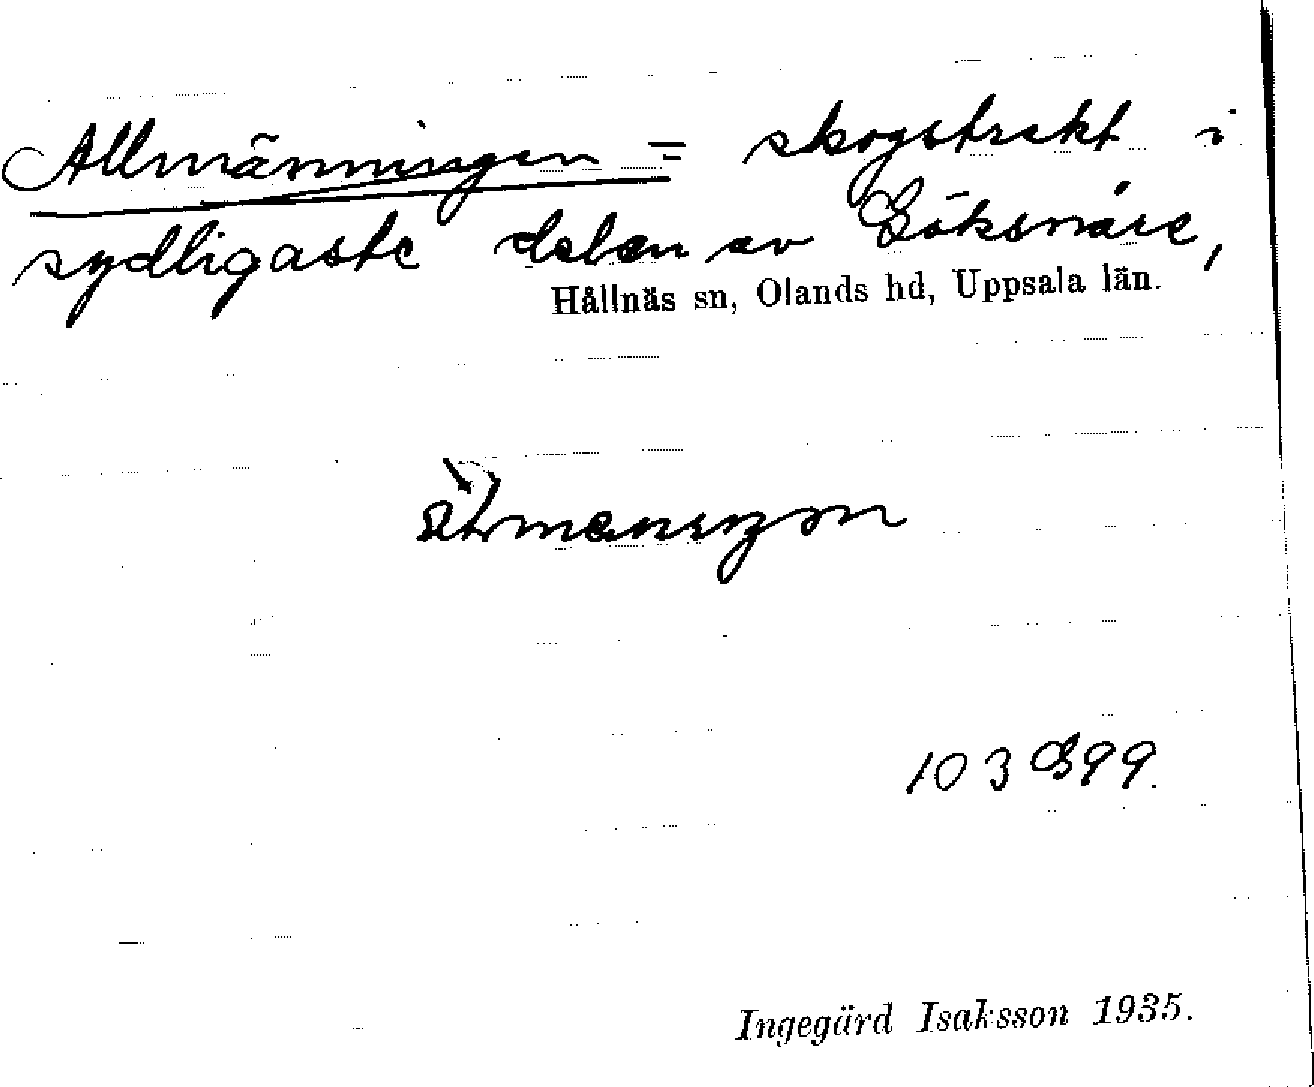 Allmänningen = skogstrakt i
sydligaste delen av Göksnåre,
Hållnäs sn, Olands hd, Uppsala län.
103 G 99.
Ingegärd Isaksson 1935.